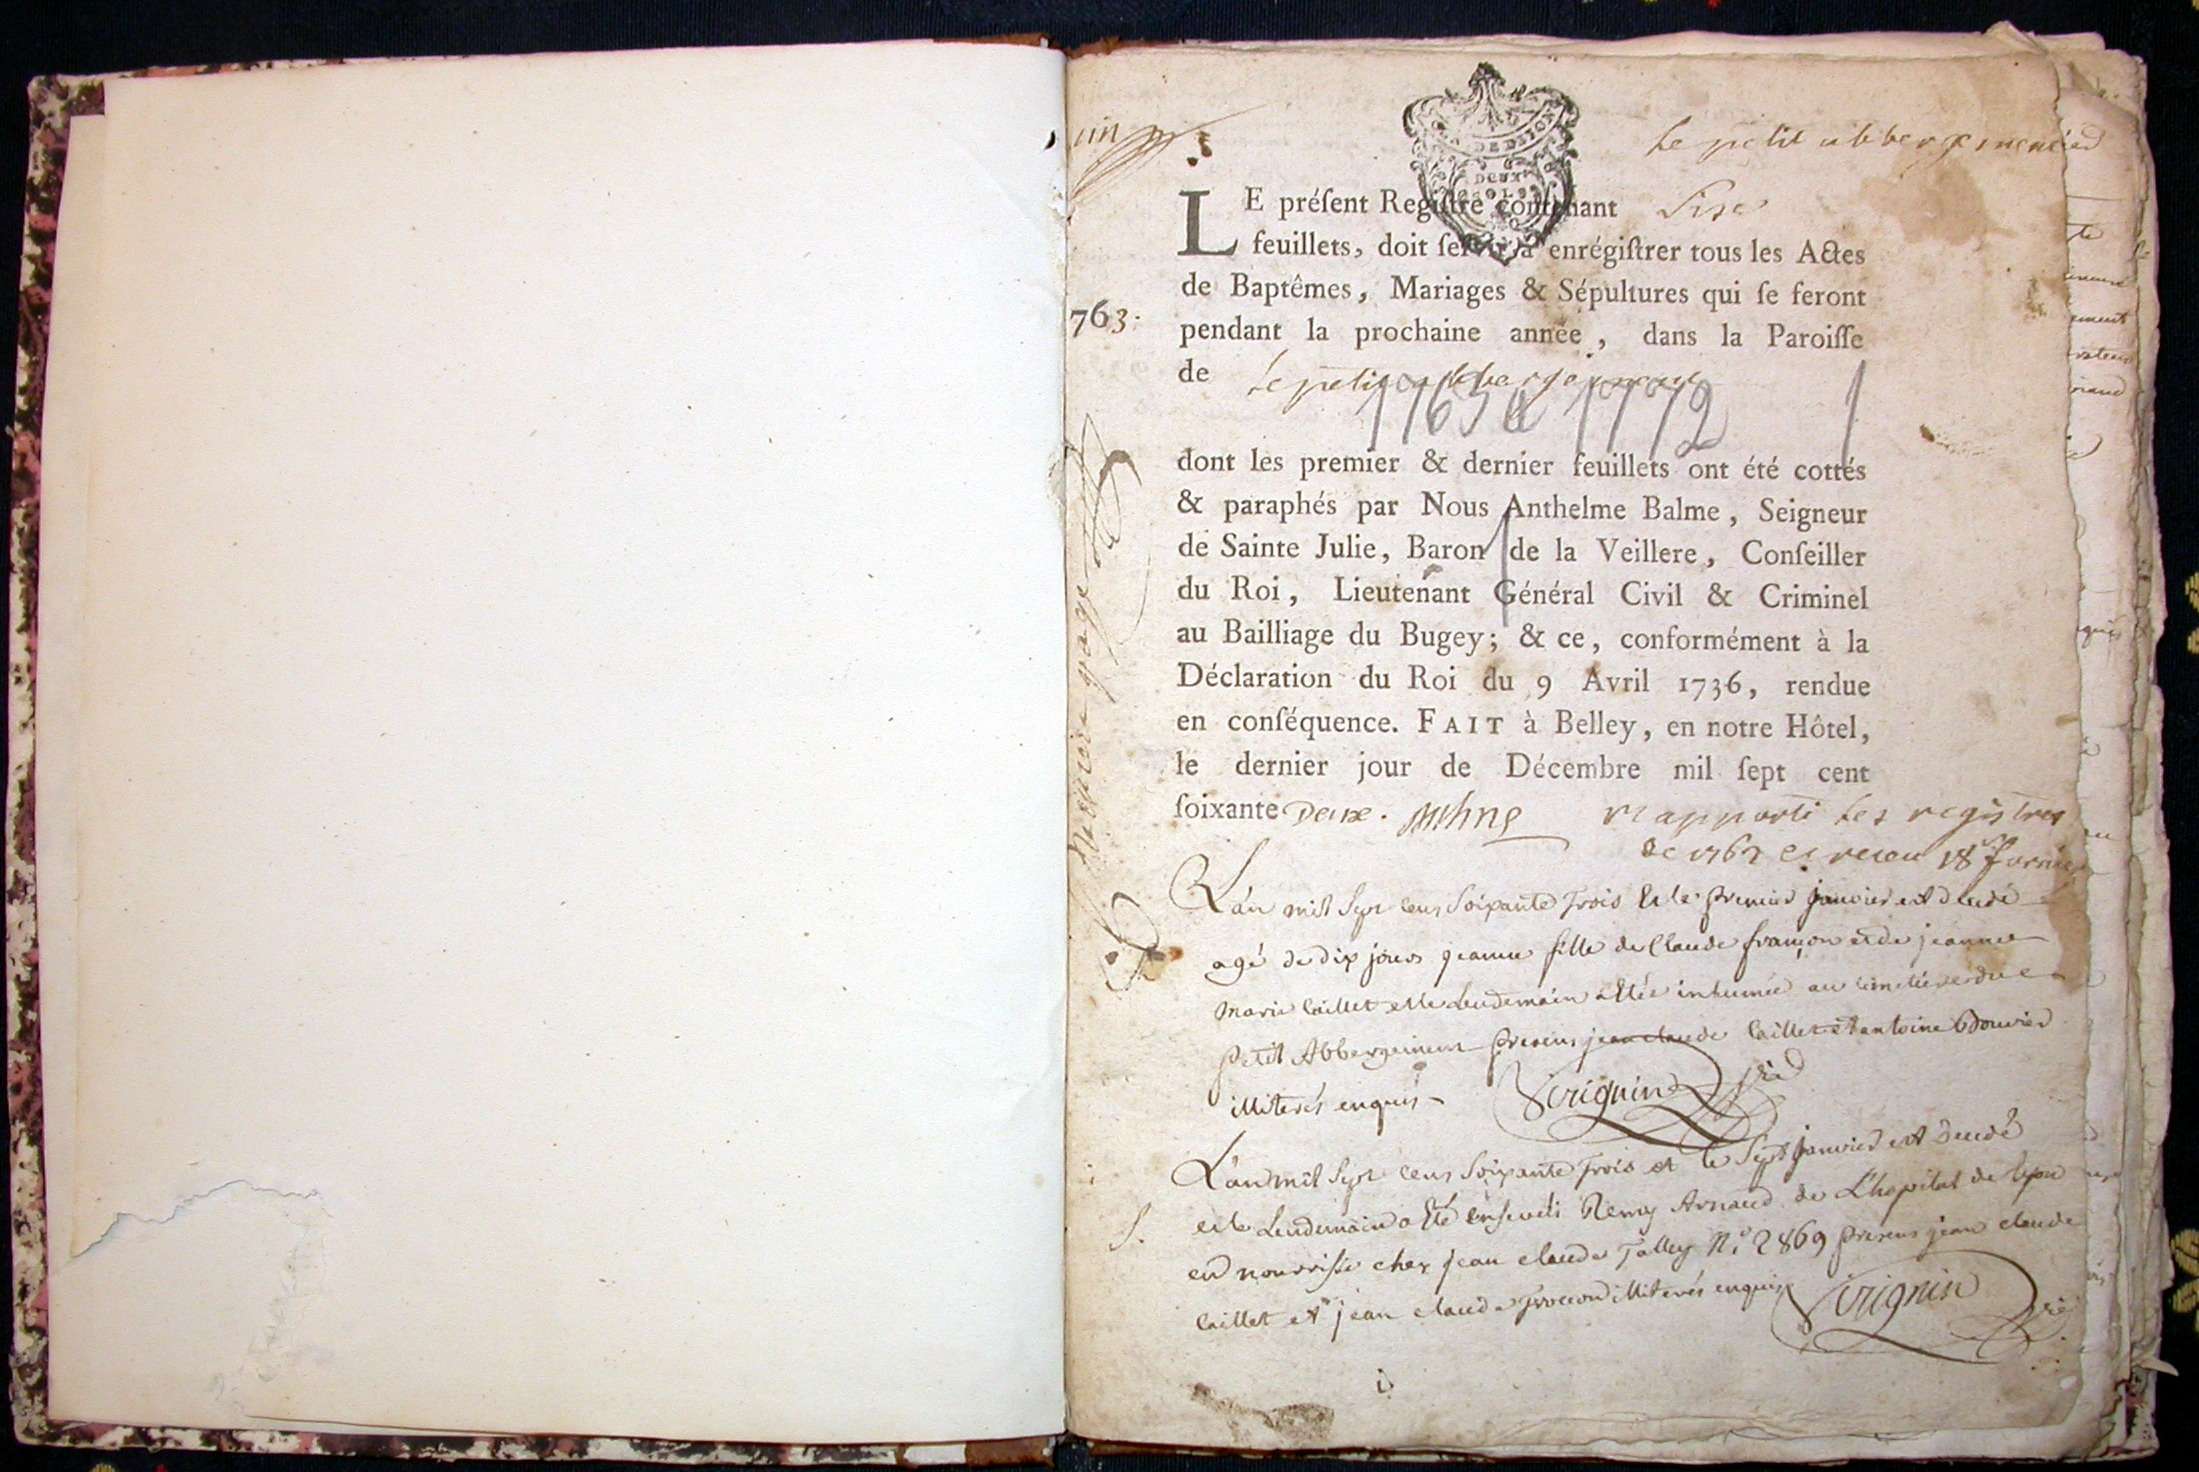 Le petit abbergement
DE DIJON
DEUX
SOLS
LE préſent Regiſtre contenant Sixe
feuillets, doit ſervir à enrégiſtrer tous les Actes
de Baptêmes, Mariages & Sépultures qui ſe feront
763.
pendant la prochaine année, dans la Paroiſſe
de Le petit abbergement
1763 à 1772
dont les premier & dernier feuillets ont été cottés
& paraphés par Nous Anthelme Balme, Seigneur
de Sainte Julie, Baron de la Veillere, Conſeiller
du Roi, Lieutenant Général Civil & Criminel
au Bailliage du Bugey; & ce, conformément à la
Déclaration du Roi du 9 Avril 1736, rendue
en conſéquence. FAIT à Belley, en notre Hôtel,
le dernier jour de Décembre mil ſept cent
ſoixante Deux. rapporté les registres
de 1762 et receu 18
L'an mil Sept cens Soixante Trois et le premier janvier est decedé
agé de dix jours jeanne fille de Claude françon et de jeanne
Marie Caillet et le Lendemain a Eté inhumée au cimetiere du
Petit Abbergement presens jean claude Caillet et antoine
illiterés enquis Serignin
L'an mil Sept cens Soixante Trois et le Sept janvier est decedé
S. et le Lendemain a Eté Enseveli Remy Arnaud de L'hopital de lyon
en nourrisse chez jean claude Talley N.º 2869 presens jean claude
Caillet et jean claude illiterés enquis Serignin